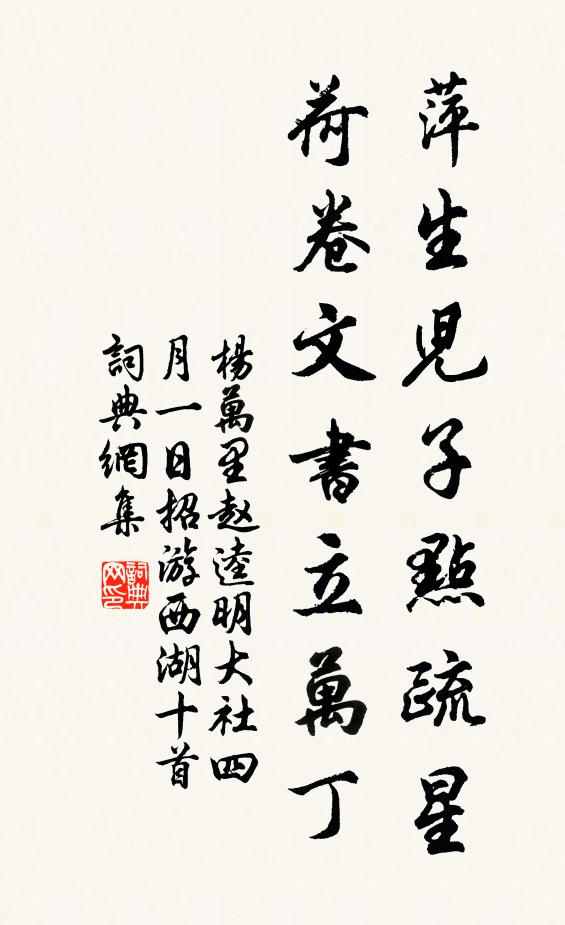 萍生兒子點疏星
荷卷文書立萬丁
楊萬里赵逵明大社四
月一日招游西湖十首
詞典網集
詞典网印